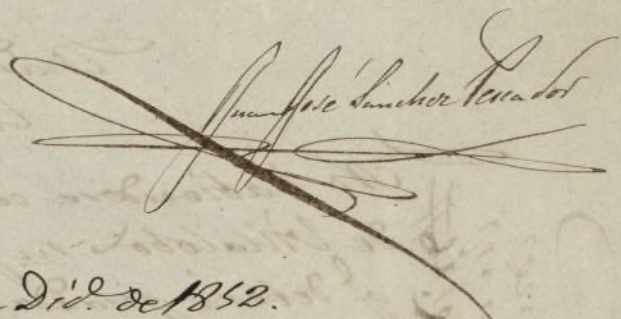 Juan José Sánchez Pescador
Dic.^e de 1852.